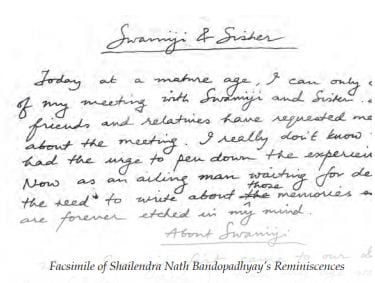 Swamiji & Sister
Today at a mature age, I can only
of my meeting with Swamiji and Sister.
friends and relatives have requested me
about the meeting. I really don't know
had the urge to pen down the experien
Now as an ailing man waiting for de
the need to write about the those memories
are forever etched in my mind.
About Swamiji
Facsimile of Shailendra Nath Bandopadhyay's Reminiscences